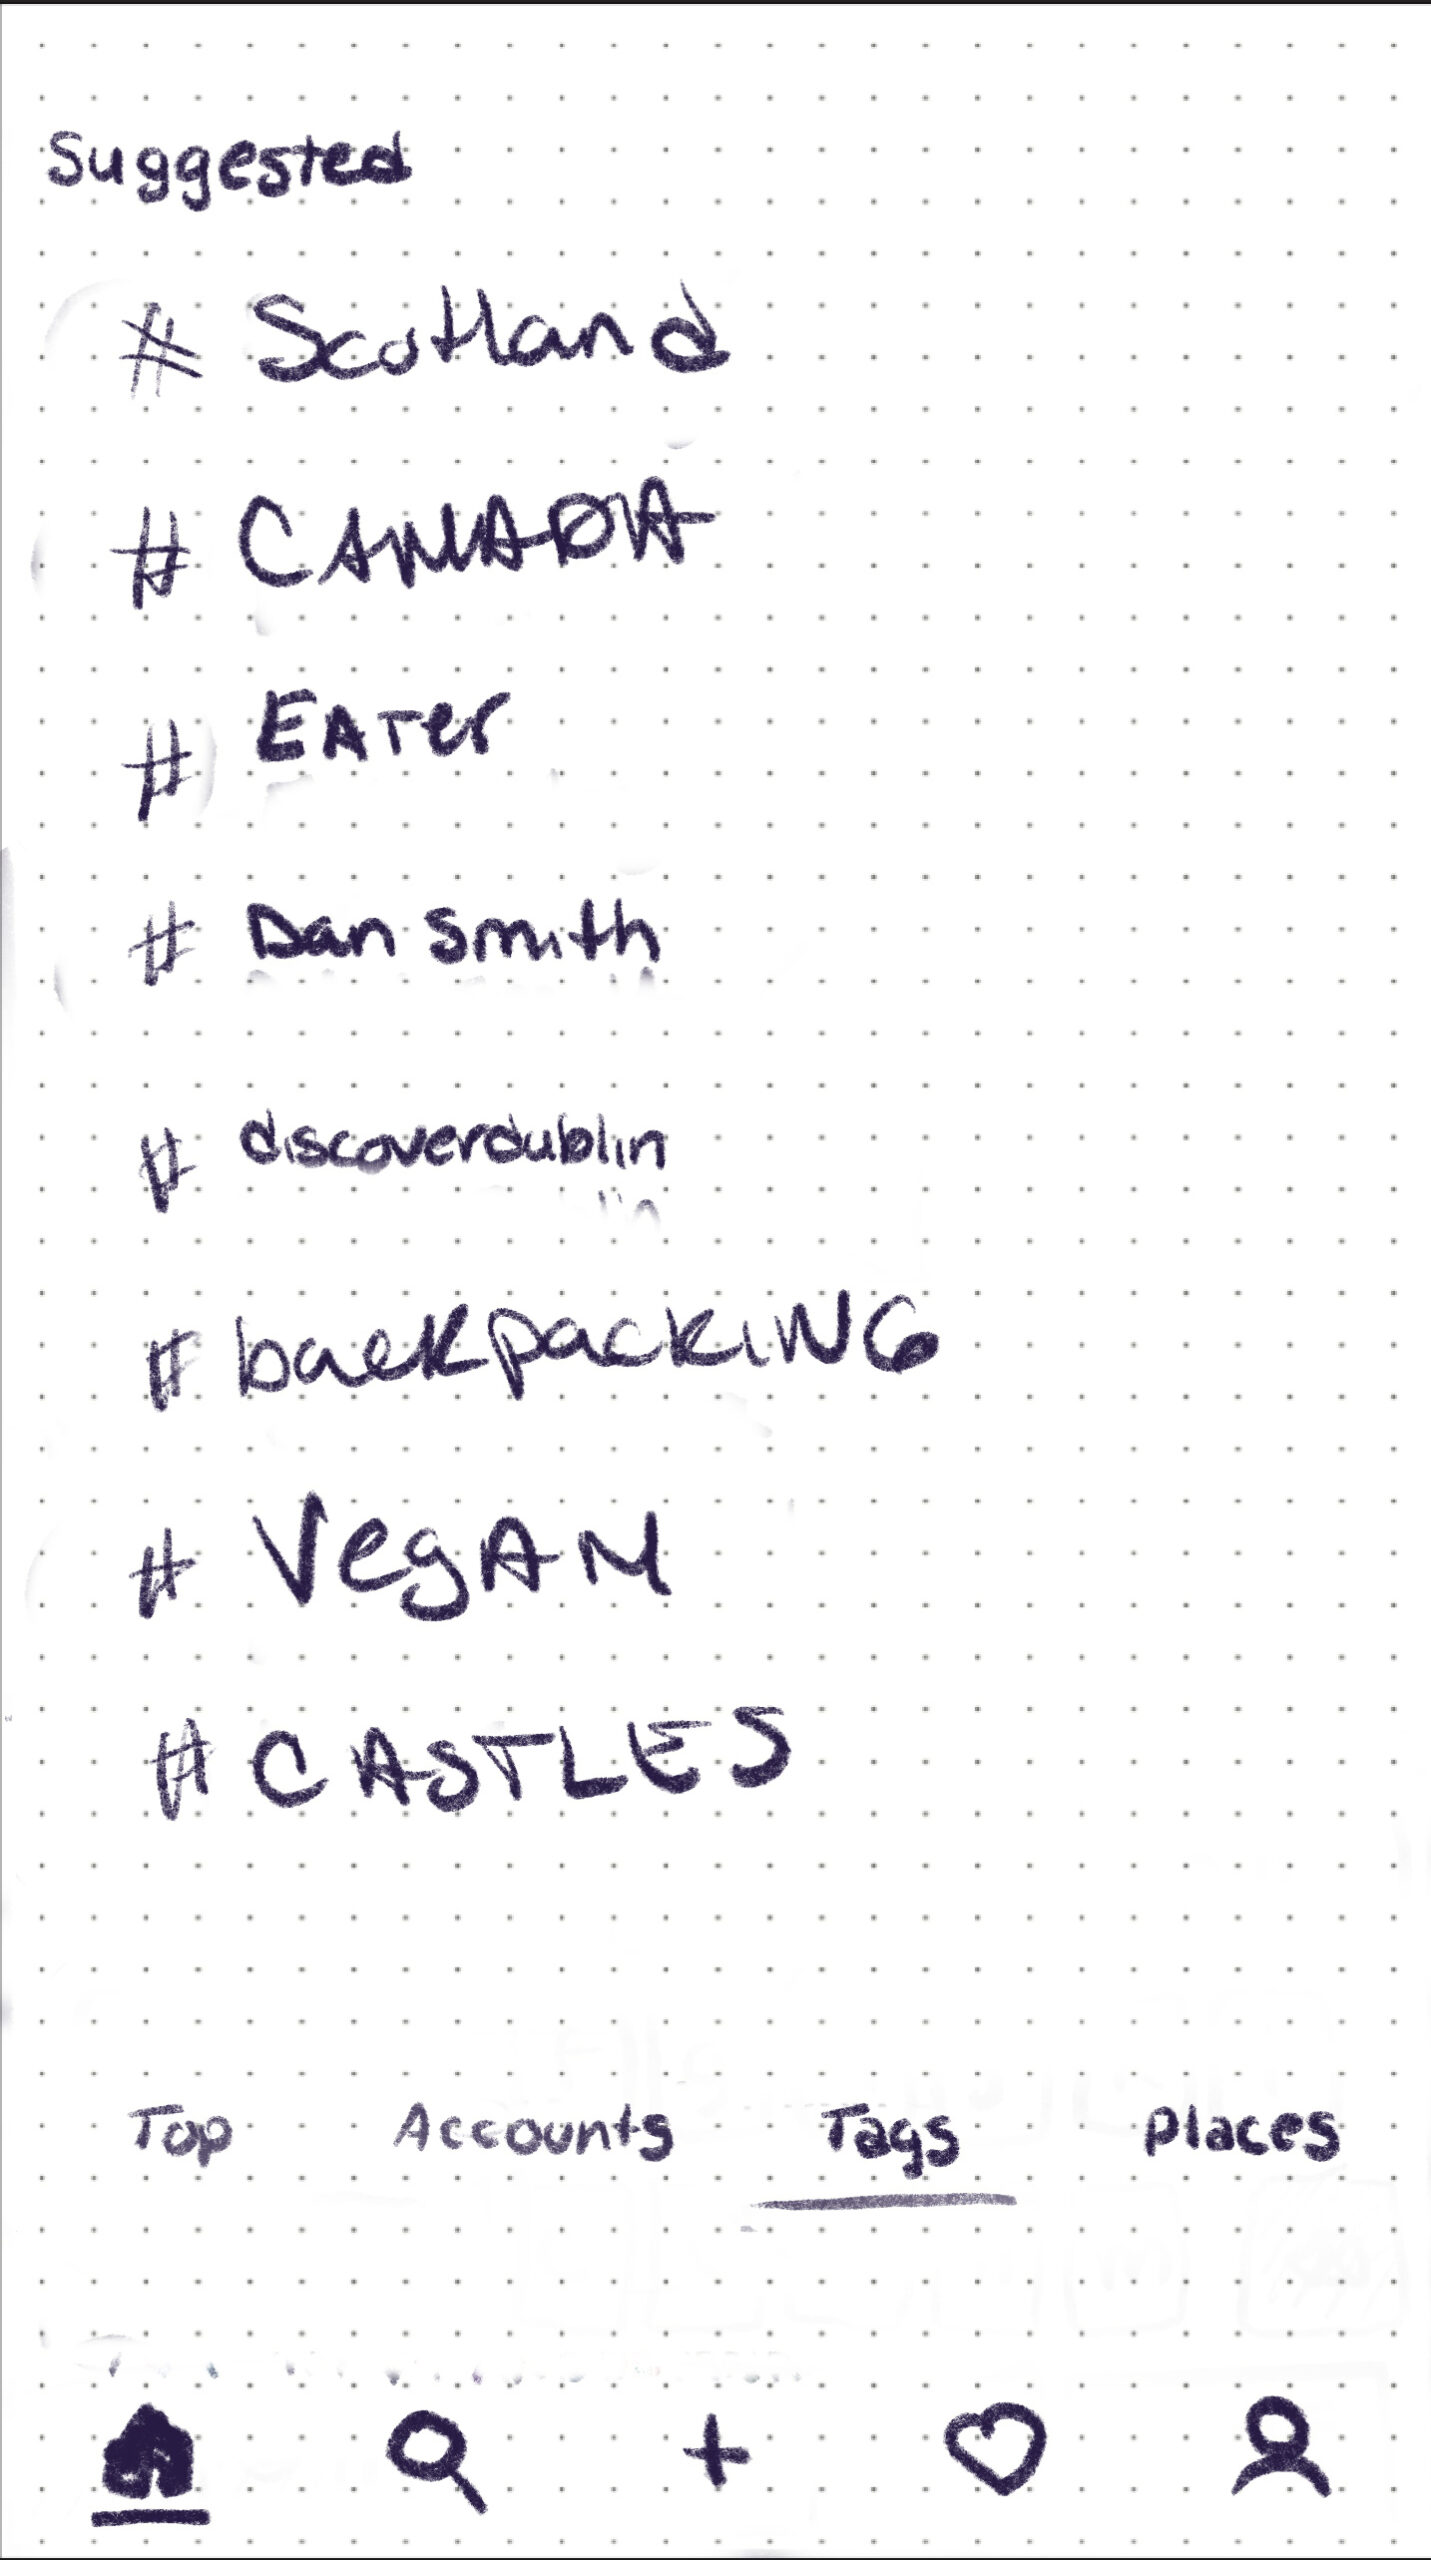 Suggested
# Scotland
# CANADA
# EATer
# Dan Smith
# discoverdublin
# backpackiNG
# VegAN
# CASTLES
Top Accounts Tags Places